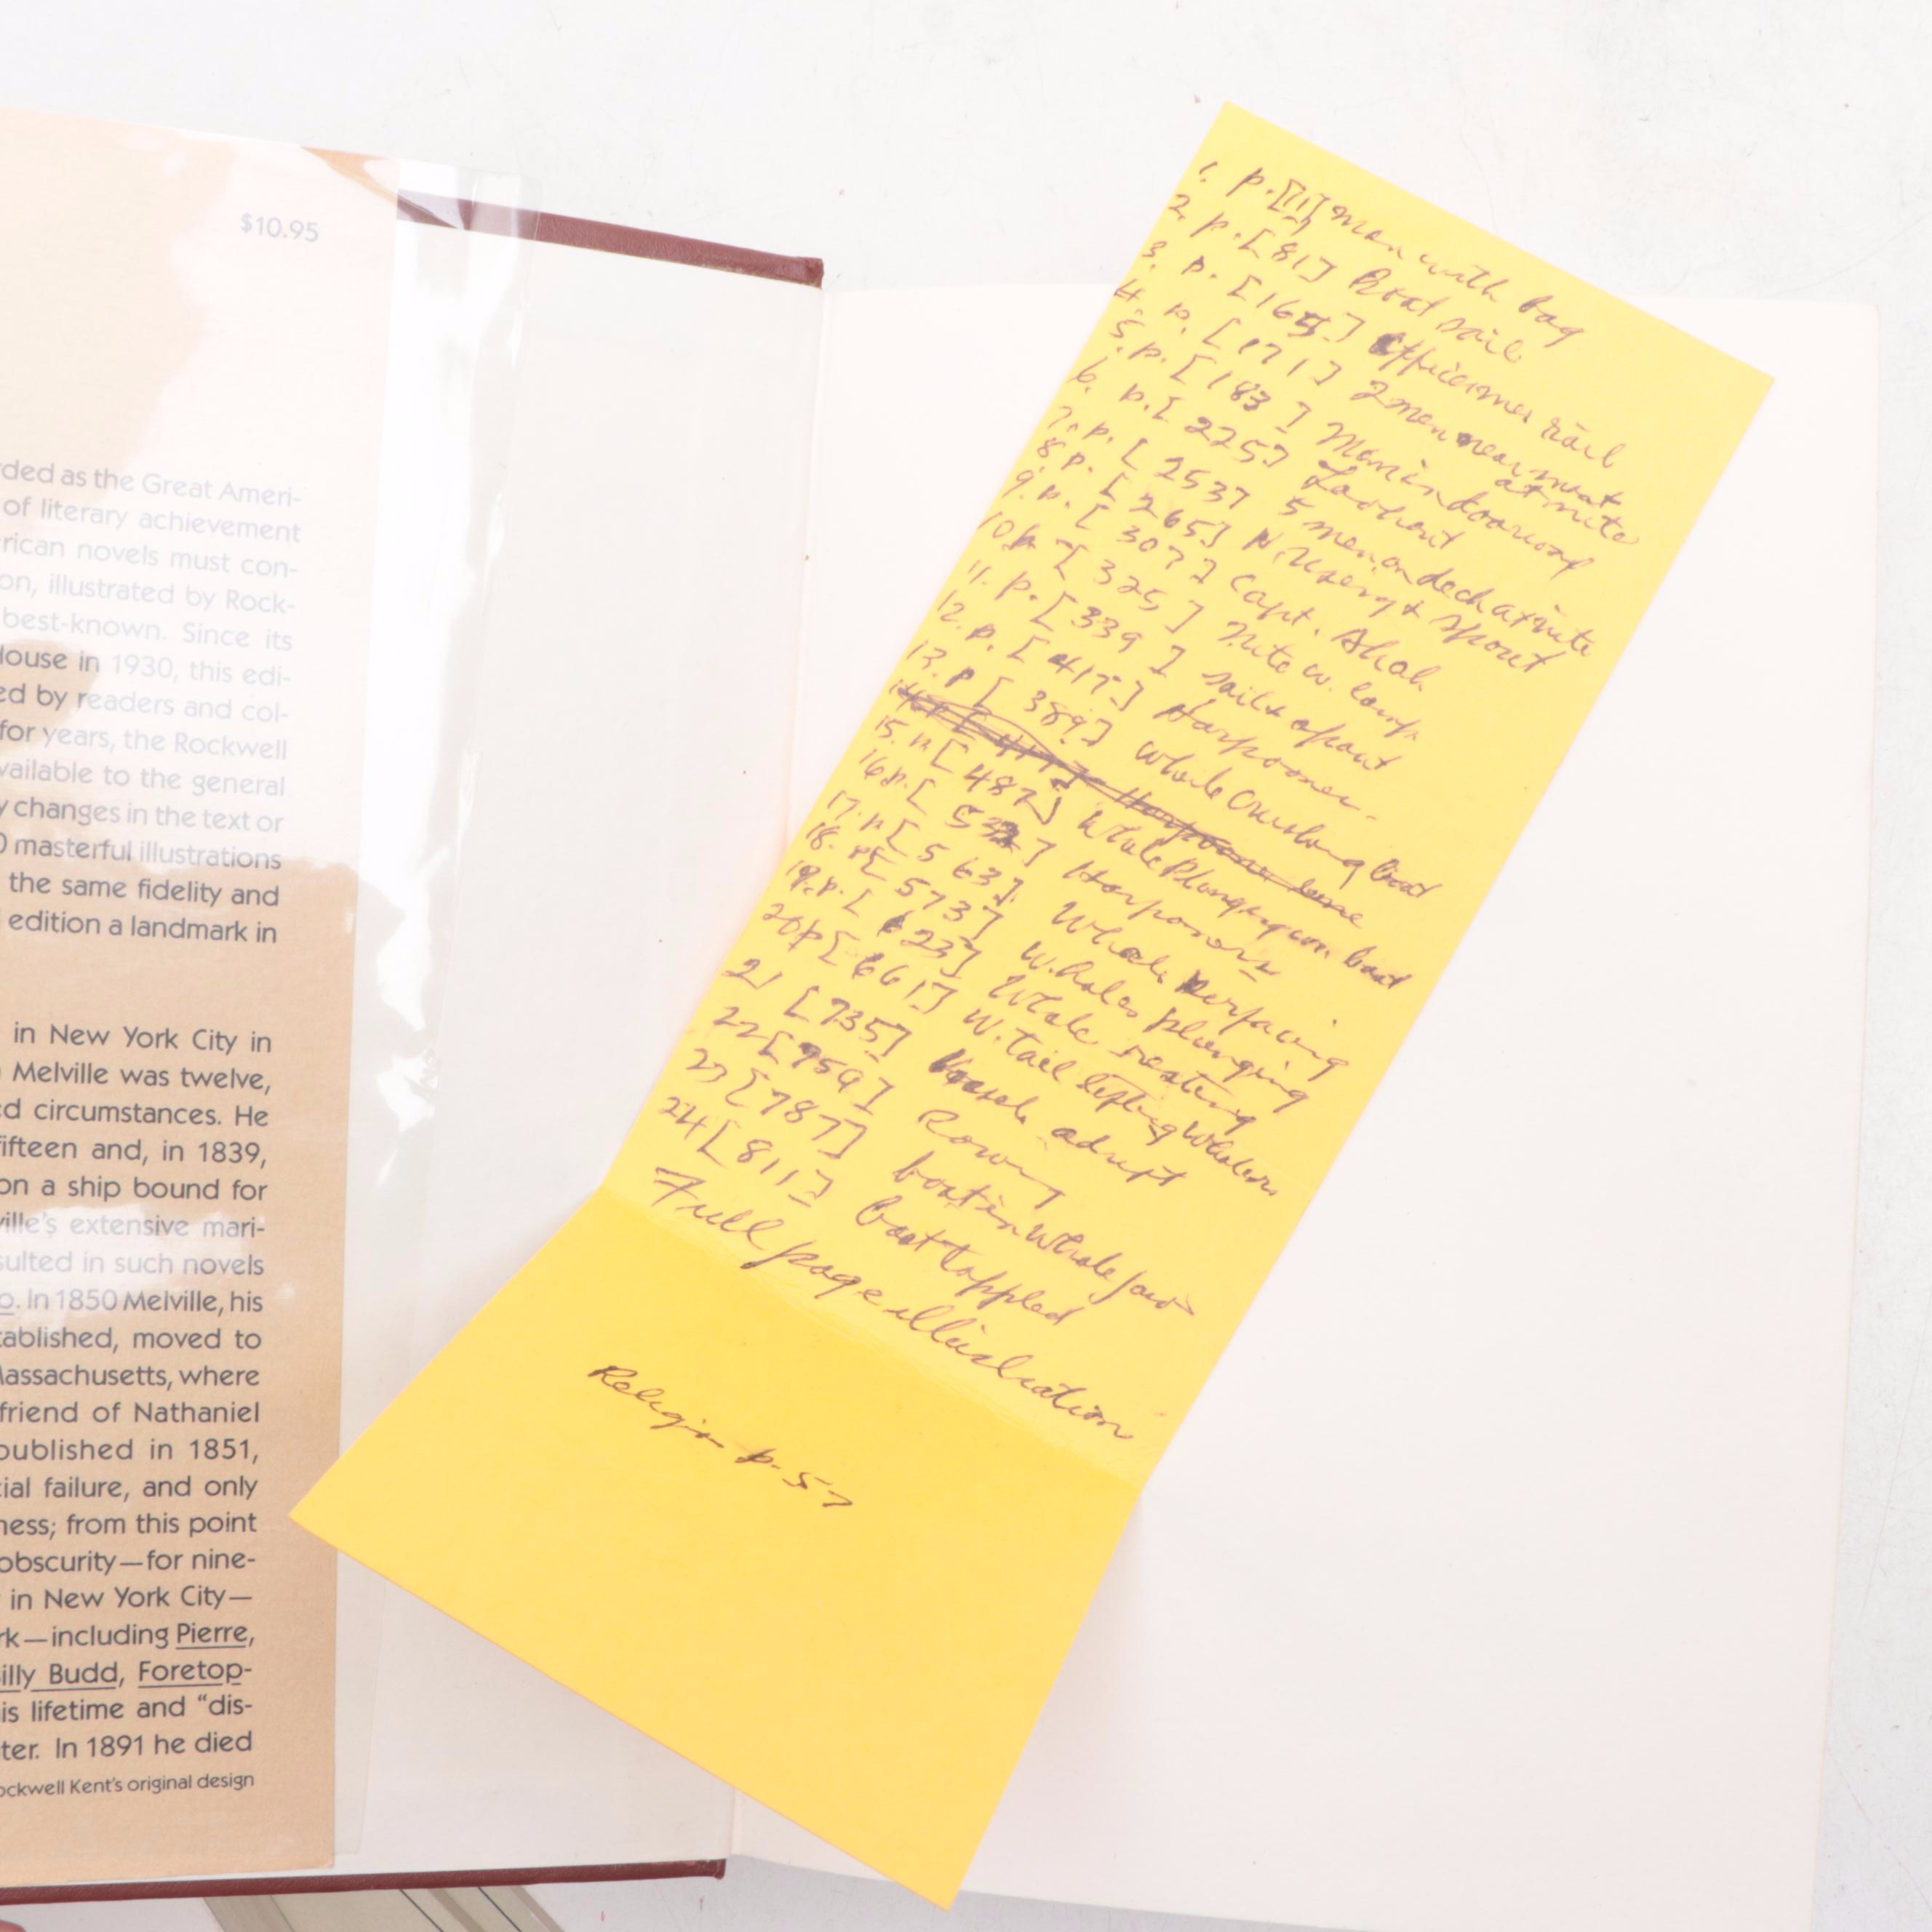 $10.95
rded as the Great Ameri-
of literary achievement
rican novels must con-
on, illustrated by Rock-
best-known. Since its
House in 1930, this edi-
ed by readers and col-
for years, the Rockwell
vailable to the general
y changes in the text or
0 masterful illustrations
the same fidelity and
edition a landmark in
in New York City in
Melville was twelve,
ed circumstances. He
ifteen and, in 1839,
on a ship bound for
ville's extensive mari-
sulted in such novels
o. In 1850 Melville, his
tablished, moved to
Massachusetts, where
friend of Nathaniel
published in 1851,
cial failure, and only
ness; from this point
obscurity—for nine-
in New York City—
rk—including Pierre,
illy Budd, Foretop-
is lifetime and “dis-
ter. In 1891 he died
ockwell Kent's original design
1. p. [1] man with bag
2. p. [81] Boat sail
3. p. [165] rail
4. p. [171] 2 men near mast at nite
5. p. [183] Man in doorway
6. p. [225] Lookout
7. p. [253] 5 men on deck at nite
8 p. [265] & spout
9. p. [307] Capt. Ahab
10 p. [325] Nite w. lamp
11. p. [339] sail & spout
12. p. [417] Harpooner
13. p [389] Whale Crushing boat
14 p [417] Harpooner
15. p [487] Whale Plunging boat
16 p. [ ] Harpooners
17. p [563] Whale surfacing
18. p [573] Whales plunging
19. p. [623] Whale
20 p [661] W. tail lifting whalers
21 [735] adrift
22 [759] Rowing
23 [787] boat in Whale jaw
24 [811] boat toppled
Full page illustration
Religion p. 57